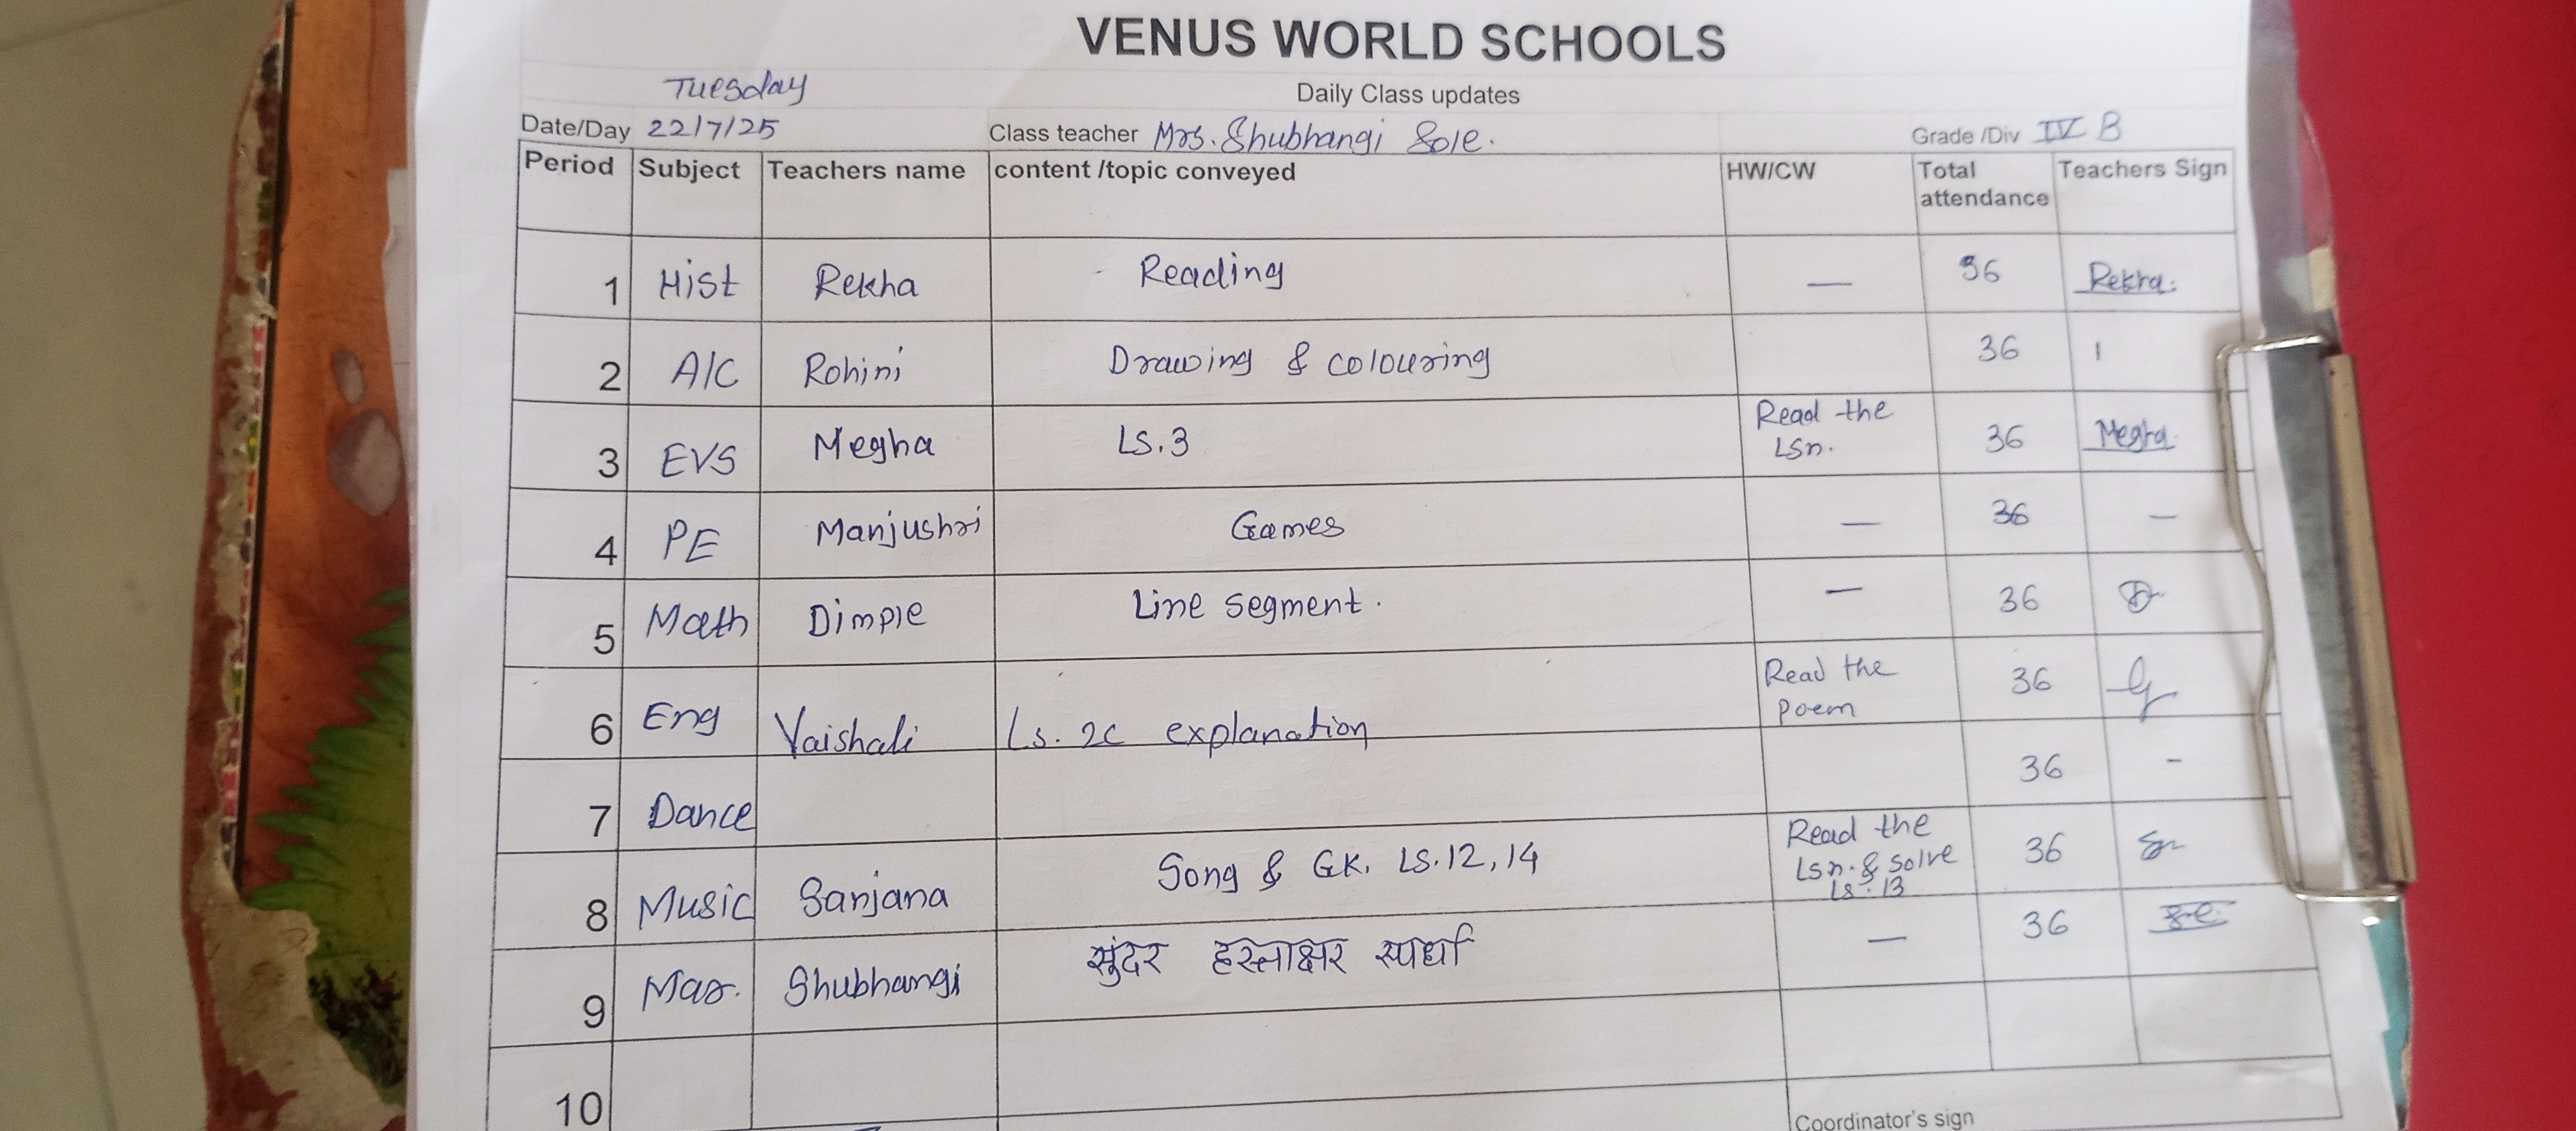 VENUS WORLD SCHOOLS
Daily Class updates
Tuesday
Date/Day 22/7/25 Class teacher Mrs. Shubhangi Sole. Grade /Div IV B
Period Subject Teachers name content /topic conveyed HW/CW Total attendance Teachers Sign
1 Hist Rekha Reading — 36 Rekha.
2 A/C Rohini Drawing & colouring 36
3 EVS Megha Ls.3 Read the Lsn. 36 Megha
4 PE Manjushri Games — 36 —
5 Math Dimple Line segment. — 36
6 Eng Vaishali Ls. 2c explanation Read the poem 36
7 Dance 36 -
8 Music Sanjana Song & GK. LS.12,14 Read the Lsn. & solve Ls. 13 36
9 Mar. Shubhangi सुंदर हस्ताक्षर स्पर्धा — 36
10
Coordinator's sign